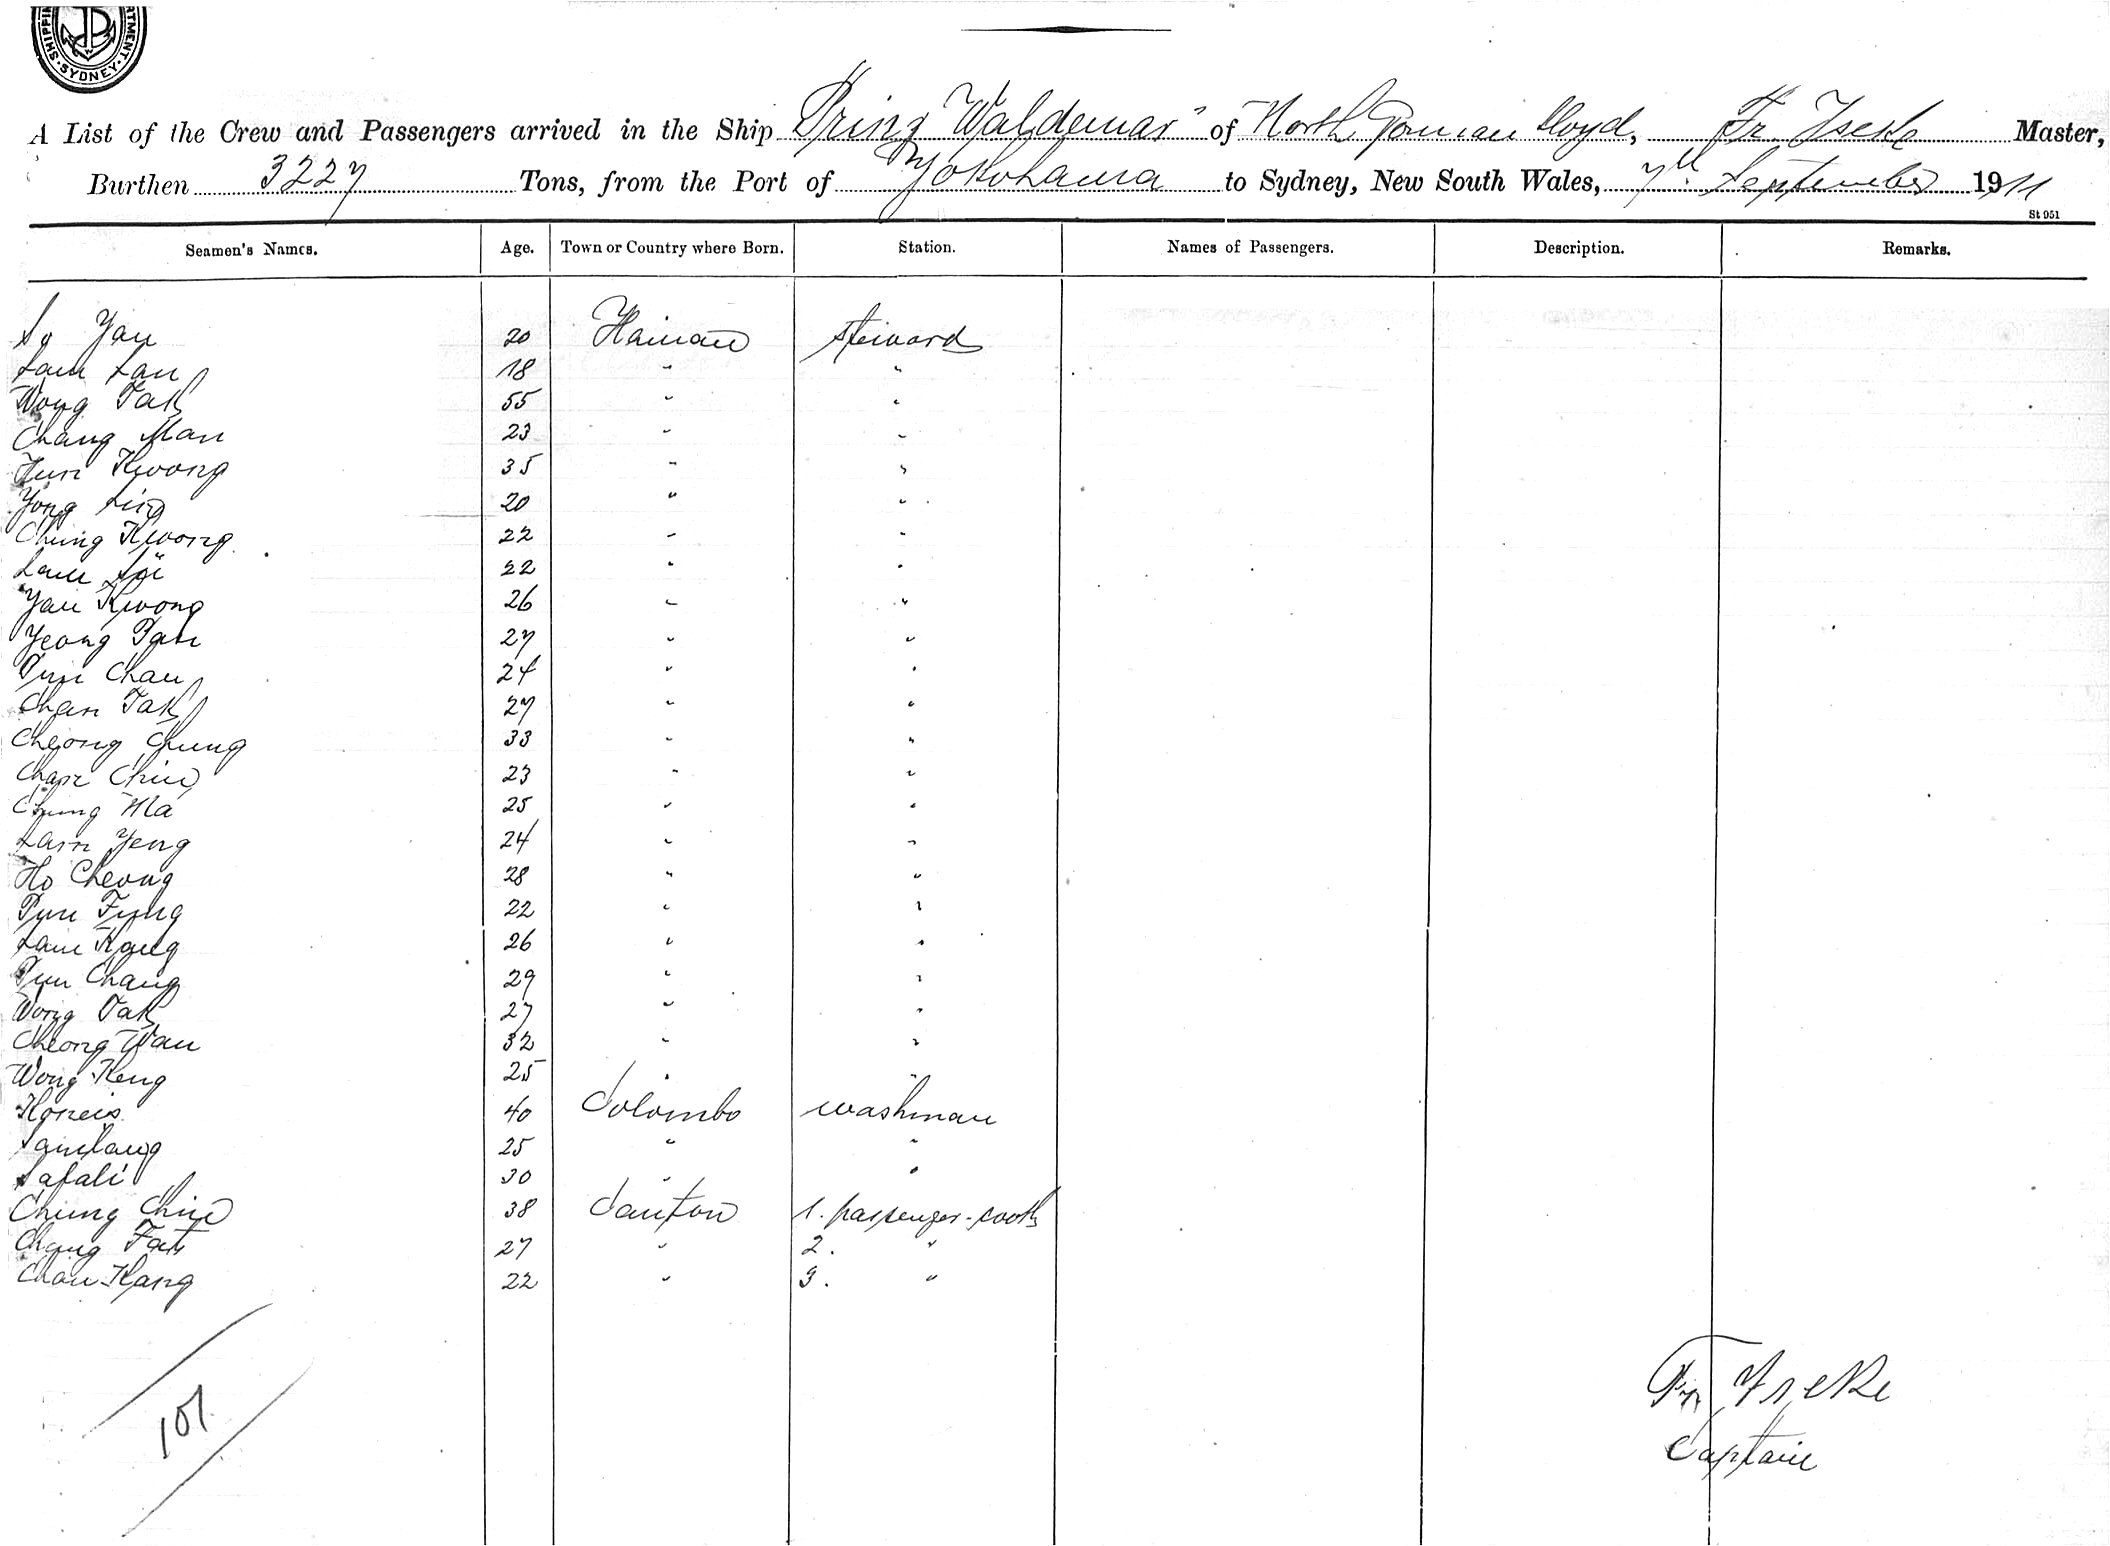 SHIPPIN RTMENT · SYDNEY ·
A List of the Crew and Passengers arrived in the Ship "Prinz Waldemar" of North German Lloyd, Fr. Iseke Master,
Burthen 3227 Tons, from the Port of Yokohama to Sydney, New South Wales, 7th September 1911
St 951
Seamen's Names. Age. Town or Country where Born. Station. Names of Passengers. Description. Remarks.
So Yau 20 Hainau steward
Lam Lau 18 " "
Wong Tak 55 " "
Chang Man 23 " "
Hun Kwong 35 " "
Yong Ling 20 " "
Chung Kwong 22 " "
Lam 22 " "
Yau Kwong 26 " "
Yeong Pan 27 " "
Pun Chau 24 " "
Chan Tak 27 " "
Cheong Chung 33 " "
Chan Chiu 23 " "
Chung Ma 25 " "
Lam Yeng 24 " "
Ho Cheong 28 " "
Pun Fung 22 " "
Lam Kong 26 " "
Pun Chang 29 " "
Wong Tak 27 " "
Cheong Wau 32 " "
Wong Keng 25 " "
40 Colombo washman
25 " "
Safali 30 " "
Chung Chiu 38 Canton 1. passenger-cook
Chang Fat 27 " 2. "
Chau Kang 22 " 3. "
101
Fr. Iseke
Captain